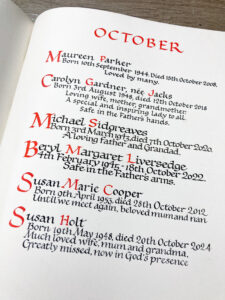 OCTOBER
Maureen Parker
Born 10th September 1944. Died 15th October 2008.
Loved by many.
Carolyn Gardner, née Jacks
Born 3rd August 1948, died 12th October 2018
Loving wife, mother, grandmother
A special and inspiring lady to all.
Safe in the Father's hands.
Michael Sidgreaves
Born 3rd March 1973, died 7th October 2020.
A loving Father and Grandad.
Beryl Margaret Liversedge
4th February 1915 - 18th October 2009
Safe in the Father's arms.
Susan Marie Cooper
Born 9th April 1953, died 28th October 2012
Until we meet again, beloved mum and nan
Susan Holt
Born 19th May 1948, died 20th October 2024
Much loved wife, mum and grandma,
Greatly missed, now in God's presence